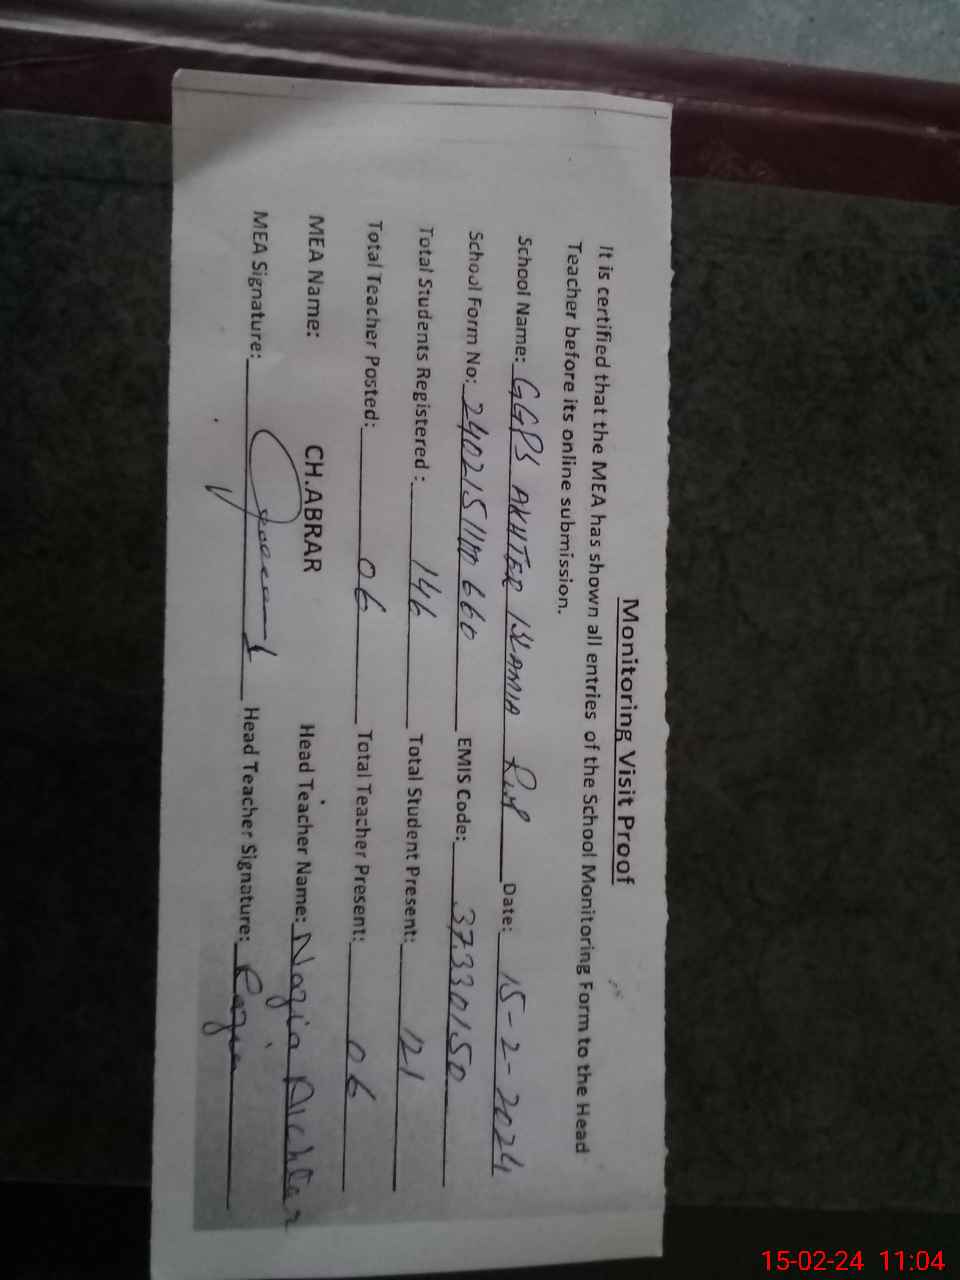 Monitoring Visit Proof
It is certified that the MEA has shown all entries of the School Monitoring Form to the Head
Teacher before its online submission.
School Name: GGPS AKHTER ISLAMIA Date: 15-2-2024
School Form No: 240215 660 EMIS Code: 37330150
Total Students Registered : 146 Total Student Present: 121
Total Teacher Posted: 06 Total Teacher Present: 06
MEA Name: CH.ABRAR Head Teacher Name: Nazia Akhtar
MEA Signature: Head Teacher Signature:
15-02-24 11:04